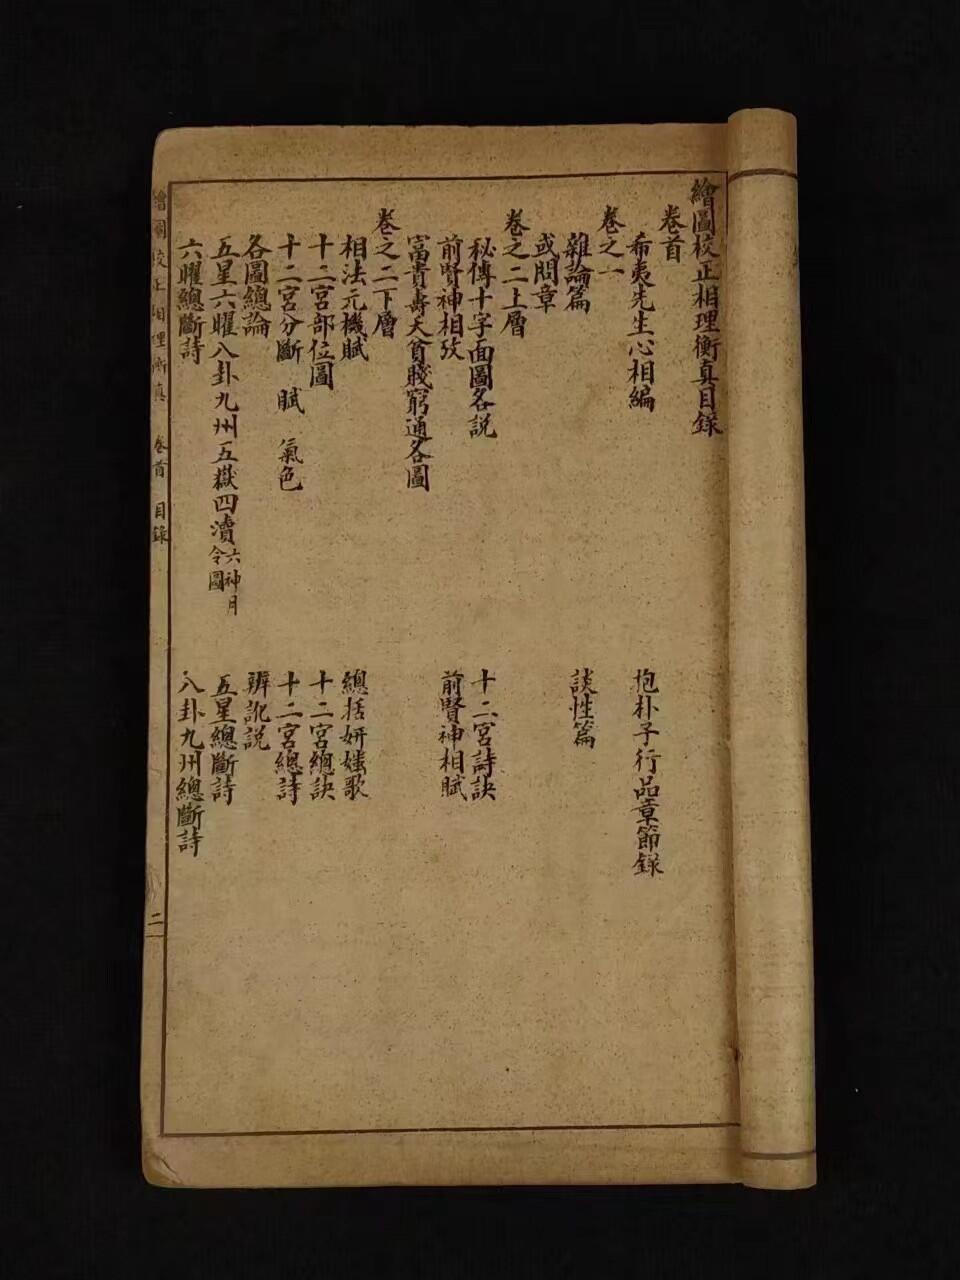 繪圖校正相理衡真目錄
卷首
希夷先生心相編
抱朴子行品章節錄
卷之一
雜論篇
談性篇
或問章
卷之二上層
秘傳十字面圖各説
十二宮詩訣
前賢神相攷
前賢神相賦
富貴壽夭貧賤窮通各圖
卷之二下層
相法元機賦
總括妍媸歌
十二宮部位圖
十二宮總訣
十二宮分斷 賦 氣色
十二宮總詩
各圖總論
辨訛説
五星六曜八卦九州五嶽四瀆六神月令圖
五星總斷詩
六曜總斷詩
八卦九州總斷詩
繪圖校正相理衡真 卷首 目錄
二